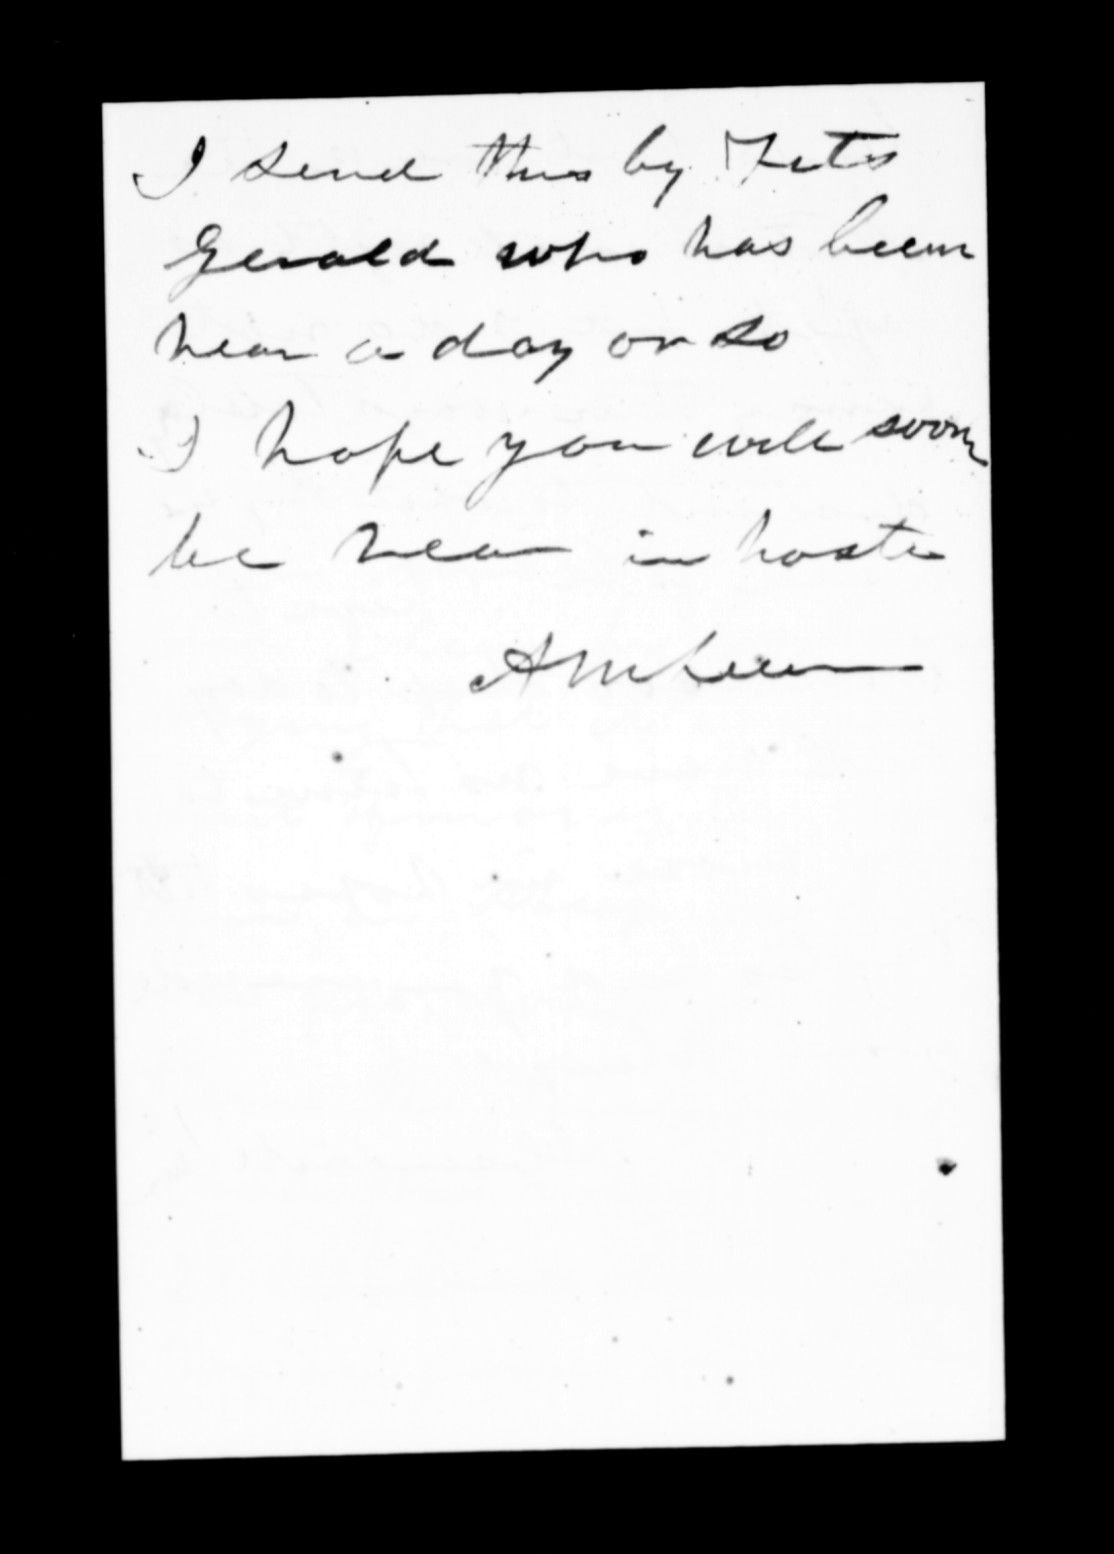 I send this by Fitz
Gerald who has been
hear a day or so
I hope you will soon
be hear in haste
A McLean